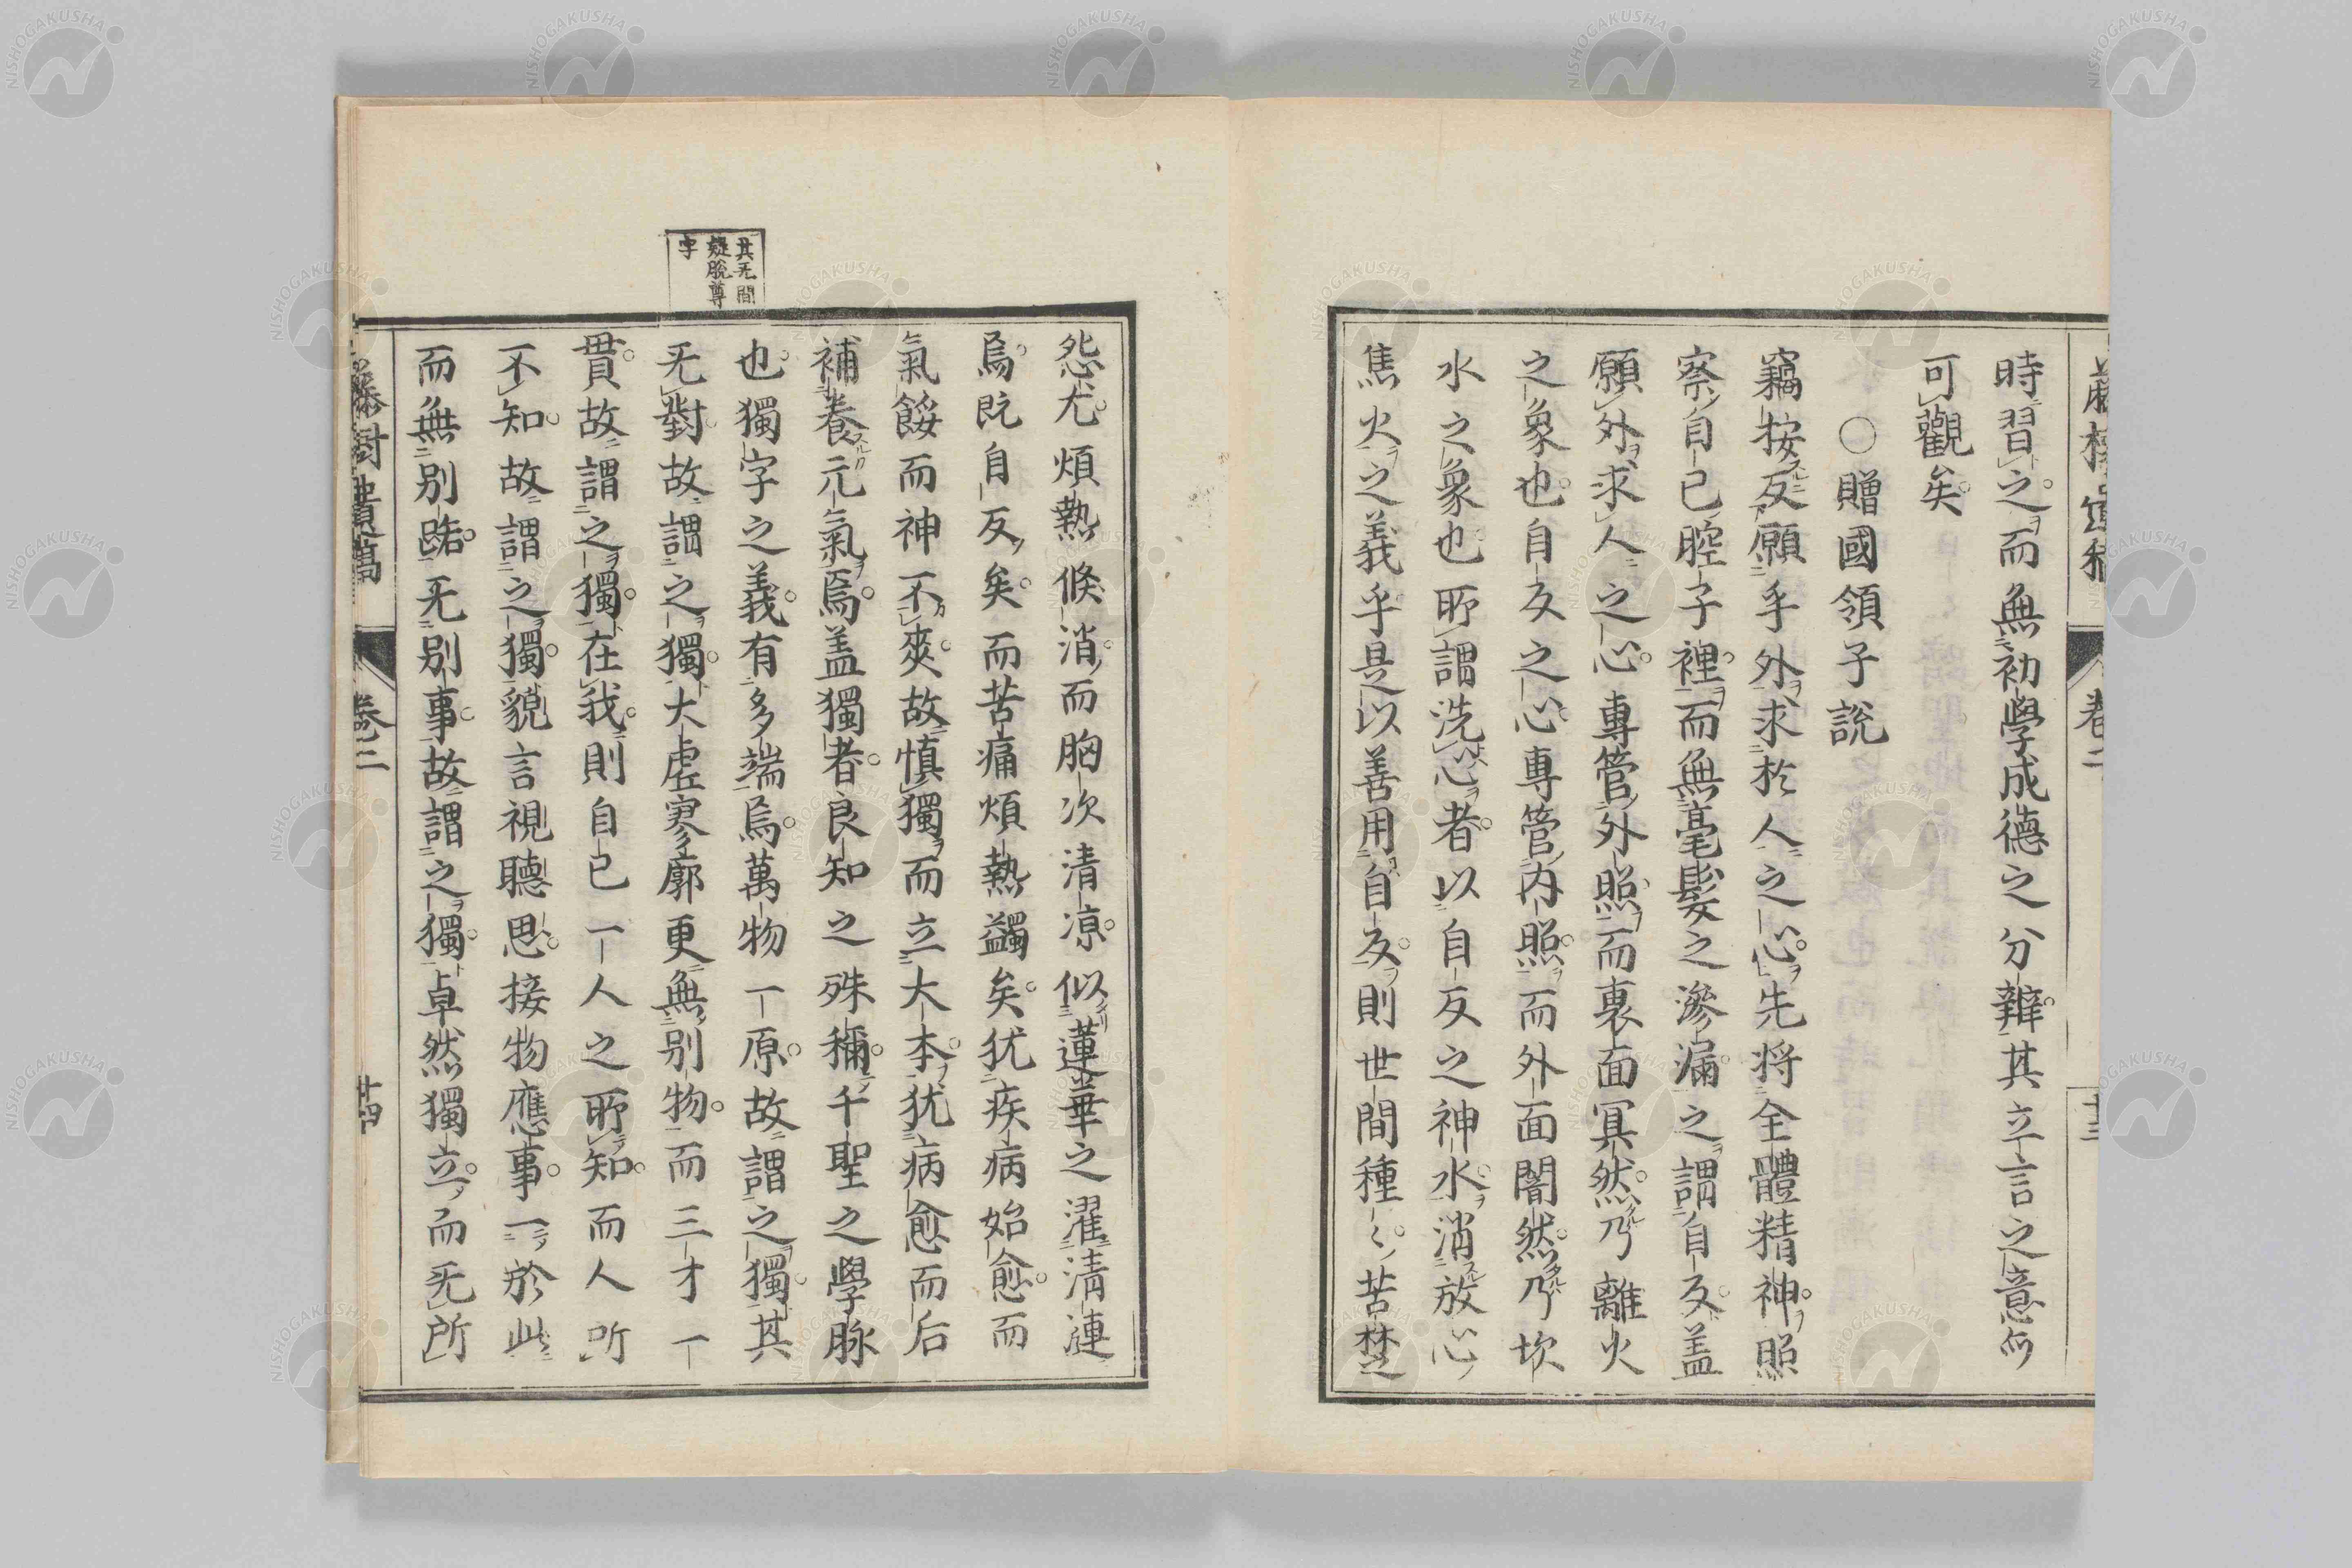 時習之而無初學成德之分辯其立言之意的
可觀矣
○贈國領子說
竊按反願乎外求於人之心先将全體精神照
察自己腔子裡而無毫髮之滲漏之謂自反盖
願外求人之心專管外照而裏面冥然乃離火
之象也自反之心專管內照而外面闇然乃坎
水之象也所謂洗心者以自反之神水消放心
焦火之義乎是以善用自反則世間種〻苦楚
怨尤煩熱倏消而胸次清凉似蓮華之濯清漣
焉既自反矣而苦痛煩熱蠲矣犹疾病始愈而
氣餒而神不爽故慎獨而立大本犹病愈而后
補養元氣焉盖獨者良知之殊稱千聖之學脉
也獨字之義有多端焉萬物一原故謂之獨其
无對故謂之獨大虛寥廓更無別物而三才一
貫故謂之獨在我則自己一人之所知而人所
不知故謂之獨貌言視聽思接物應事一於此
而無別路无別事故謂之獨卓然獨立而无所
其无間
疑脫尊
字
卷二
十三
藤樹遺稿
卷二
十四
NISHOGAKUSHA